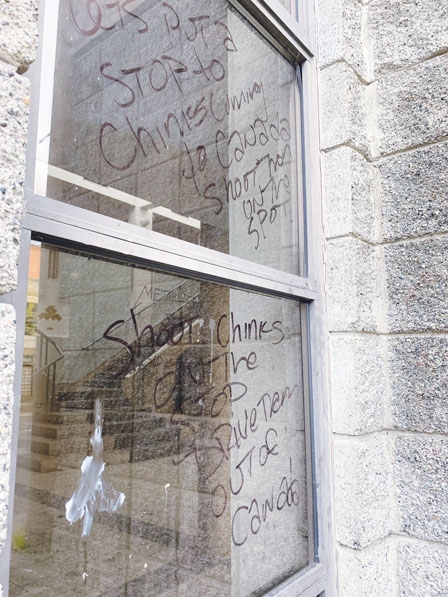 LETS PUT a
STOP to
Chinks Coming
to Canada
Shoot them
ON the
SPOT
Shoot Chinks
the
DRIVE Them
OUT OF
CANADA!